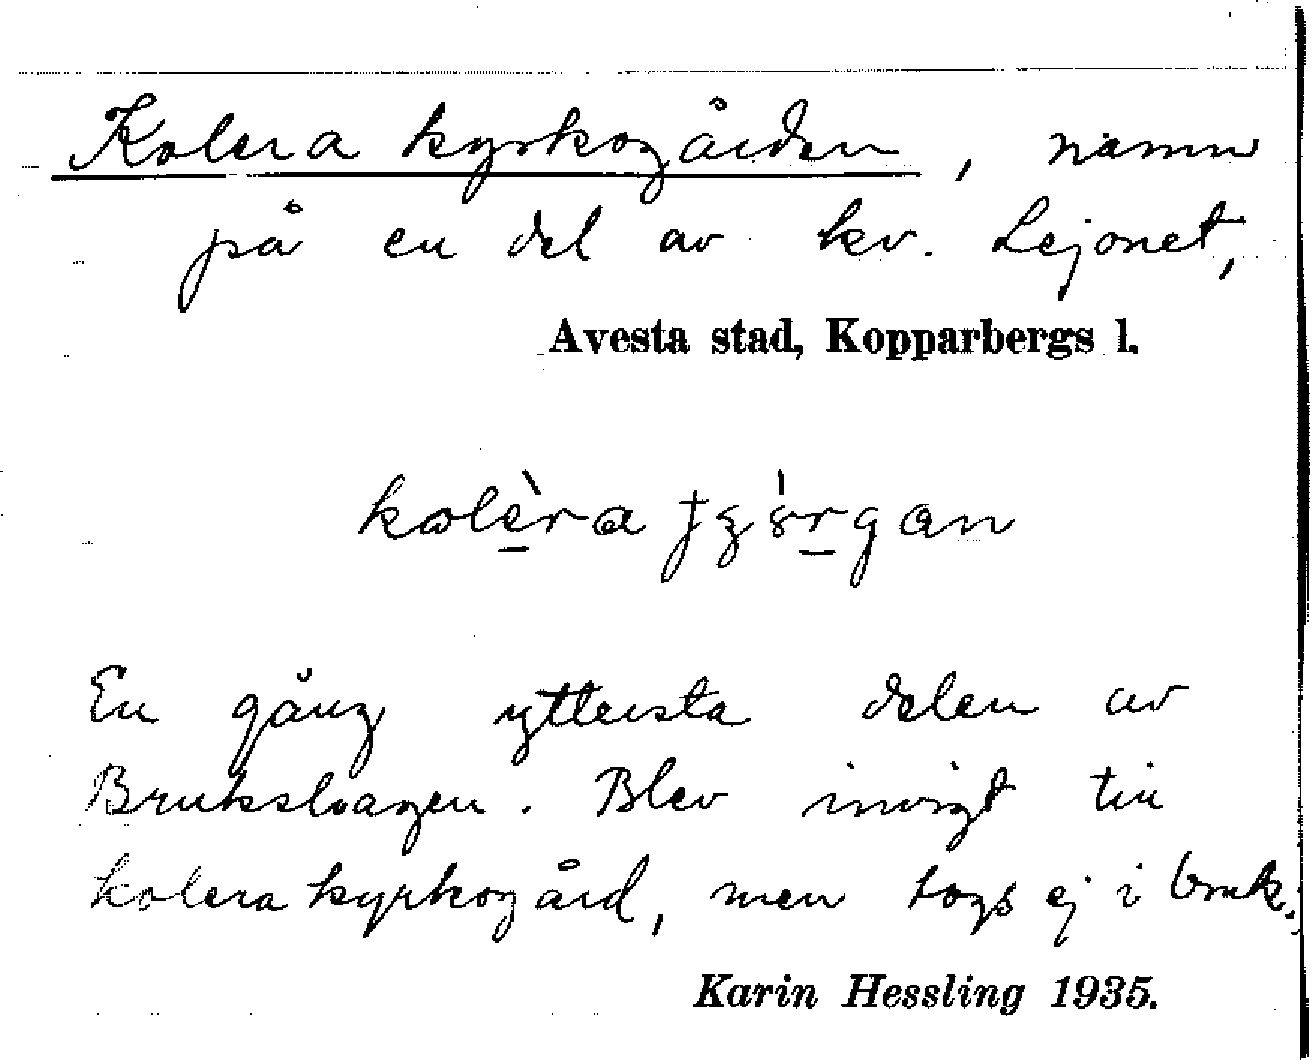 Kolera kyrkogården, namn
på en del av kv. Lejonet,
Avesta stad, Kopparbergs l.
En gång yttersta delen av
Brukshagen. Blev invigt till
kolera kyrkogård, men togs ej i bruk.
Karin Hessling 1935.